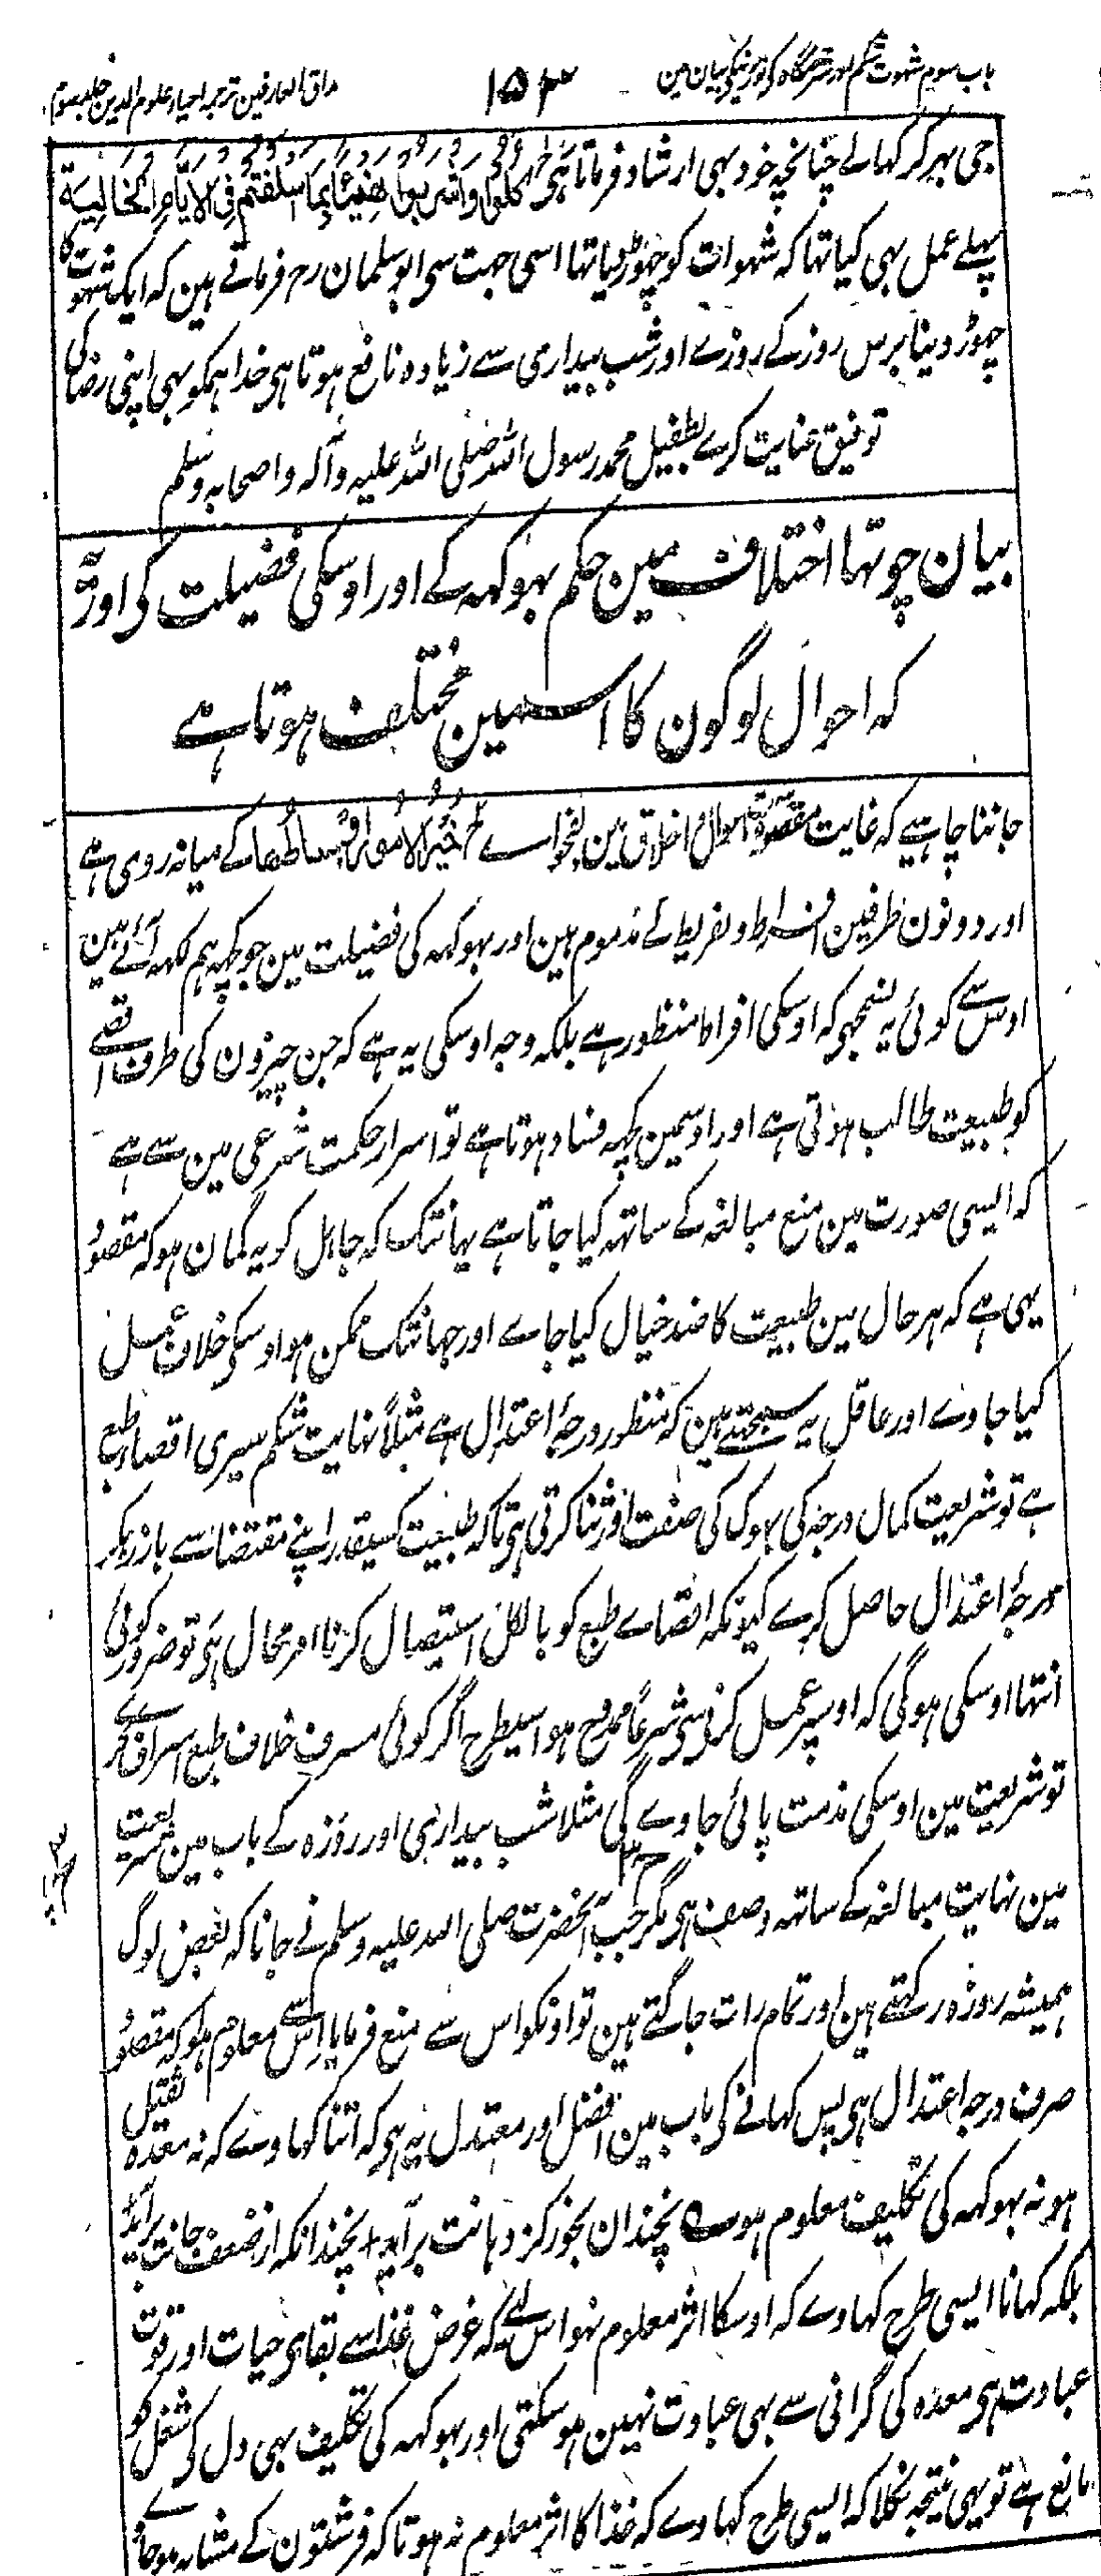 باب سوم شہوت شکم اور شرمگاہ کو توڑنیکے بیان مین ۱۵۳ مذاق العارفین ترجمہ احیاء علوم الدین جلد سوم
جی بھر کر کھالے چنانچہ خود بھی ارشاد فرماتا ہے کُلُوا وَاشْرَبُوا هَنِيئًا بِمَا أَسْلَفْتُمْ فِي الْأَيَّامِ الْخَالِيَةِ
پہلے عمل بہی کیا تہا کہ شہوات کو چہوڑ دیا تہا اسی جہت سی ابو سلمان رح فرماتے ہین کہ ایک شہوت کا
چہوڑ دینا برس روز کے روزے اور شب بیداری سے زیادہ نافع ہوتا ہی خدا ہمکو بہی اپنی رضا کی
توفیق عنایت کرے بطفیل محمد رسول اللہ صلی اللہ علیہ وآلہ واصحابہ وسلم
بیان چوتہا اختلاف مین حکم بہوکہہ کے اور اوسکی فضیلت کی اور
کہ احوال لوگون کا اسمین مختلف ہوتا ہے
جاننا چاہیے کہ غایت مقصود احوال اخلاق مین بفحواے خَيْرُ الْأُمُورِ أَوْسَاطُهَا کے میانہ روی ہے
اور دونون طرفین افراط و تفریط کے مذموم ہین اور بہوکہہ کی فضیلت مین جو کچہہ ہم لکہہ آئے ہین
اوس سے کوئی یہ نسمجہے کہ اوسکی افراط منظور ہے بلکہ وجہ اوسکی یہ ہے کہ جن چیزون کی طرف اقصے
کو طبیعت طالب ہوتی ہے اور اوسمین کچہہ فساد ہوتا ہے تو اسرار حکمت شرعی مین سے ہے
کہ ایسی صورت مین منع مبالغہ کے ساتہہ کیا جاتا ہے یہانتک کہ جاہل کو یہ گمان ہو کہ مقصود
یہی ہے کہ ہر حال مین طبیعت کا ضد خیال کیا جاے اور جہانتک ممکن ہو اوسکی خلاف عمل
کیا جاوے اور عاقل یہ سمجہتے ہین کہ منظور درجۂ اعتدال ہے مثلاً نہایت شکم سیری اقصاے طبع
ہے تو شریعت کمال درجہ کی بہوک کی صفت اور ثنا کرتی ہی تاکہ طبیعت کسیقدر اپنے مقتضا سے باز رہکر
درجۂ اعتدال حاصل کرے کیونکہ اقتضاے طبع کو بالکل استیصال کرنا امر محال ہی تو ضرور کوئی
انتہا اوسکی ہوگی کہ اوسپر عمل کرنے سی شرعًا ممدوح ہو اسیطرح اگر کوئی مسرف خلاف طبع اسراف کرے
تو شریعت مین اوسکی مذمت پائی جاوے گی مثلا شب بیداری اور روزہ کے باب مین شریعت
مین نہایت مبالغہ کے ساتہہ وصف ہی مگر جب آنحضرت صلی اللہ علیہ وسلم نے جانا کہ بعض لوگ
ہمیشہ روزہ رکہتے ہین اور تمام رات جاگتے ہین تو اونکو اس سے منع فرمایا اس سے معلوم ہوا کہ مقصود
صرف درجہ اعتدال ہی پس کہانے کی باب مین افضل اور معتدل یہ ہی کہ اتنا کہاوے کہ نہ معدہ ثقیل
ہو نہ بہوکہہ کی تکلیف معلوم ہو ے نچندان بخور کز دہانت برآید + نچندانکہ از ضعف جانت برآید
بلکہ کہانا ایسی طرح کہاوے کہ اوسکا اثر معلوم نہو اس لیے کہ غرض غذا سے بقای حیات اور قوت
عبادت ہی معدہ کی گرانی سے بہی عبادت نہین ہو سکتی اور بہوکہہ کی تکلیف بہی دل کی شغل کو
مانع ہے تو یہی نتیجہ نکلا کہ ایسی طرح کہاوے کہ غذا کا اثر معلوم نہ ہو تاکہ فرشتون کے مشابہ ہو جاے